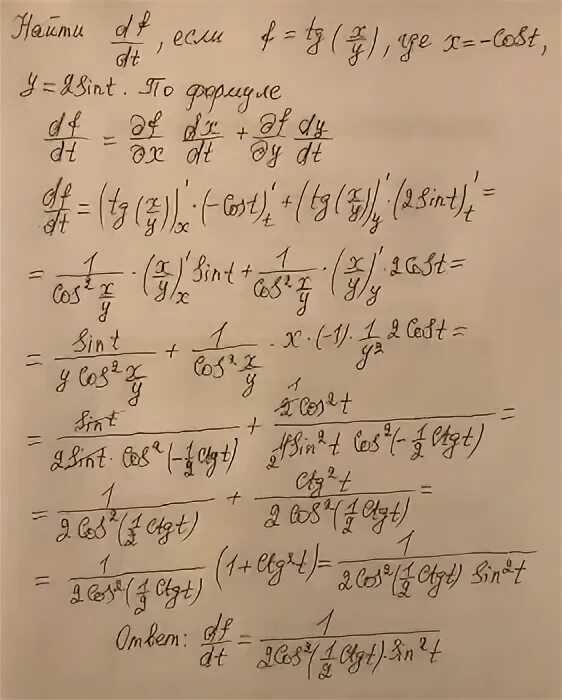 Найти df/dt, если f = tg(x/y), где x = -Cost,
y = 2Sint. По формуле
df/dt = ∂f/∂x dx/dt + ∂f/∂y dy/dt
df/dt = (tg(x/y))'ₓ · (-Cost)'ₜ + (tg(x/y))'ᵧ · (2Sint)'ₜ =
= 1/(Cos² x/y) · (x/y)'ₓ Sint + 1/(Cos² x/y) · (x/y)'ᵧ · 2Cost =
= Sint/(y Cos² x/y) + 1/(Cos² x/y) · x · (-1) · 1/y² 2Cost =
= Sint/(2Sint · Cos²(-1/2 Ctgt)) + 2Cos²t (1)/(4Sin²t Cos²(-1/2 Ctgt)) (2) =
= 1/(2Cos²(1/2 Ctgt)) + Ctg²t/(2Cos²(1/2 Ctgt)) =
= 1/(2Cos²(1/2 Ctgt)) (1 + Ctg²t) = 1/(2Cos²(1/2 Ctgt) Sin²t)
Ответ: df/dt = 1/(2Cos²(1/2 Ctgt) · Sin²t)